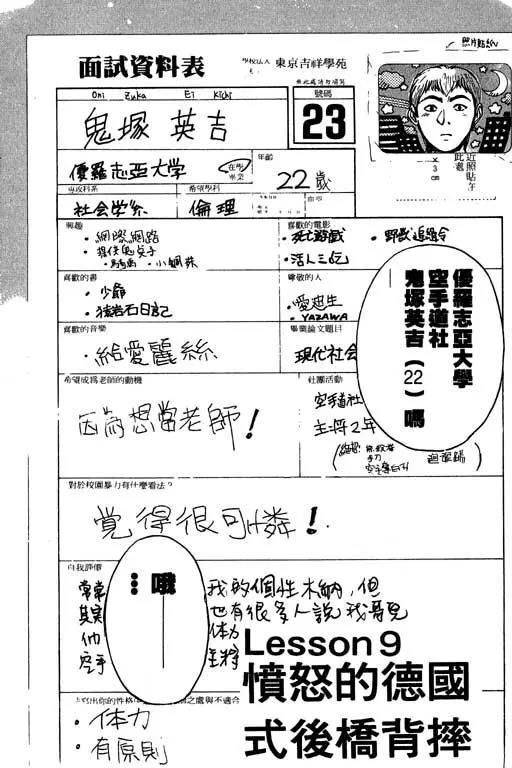 照片貼紙
面試資料表
東京吉祥學苑
Oni Zuka Ei Kichi
鬼塚 英吉
號碼
23
近照貼於此處
×3cm
優羅志亞大学
在學
畢業
年齡
22歲
專攻科系
希望學科
社会学系
倫理
興趣
・網際網路
喜歡的電影
・死亡遊戲
・活人三
喜歡的書
・少爺
・猿岩石日記
尊敬的人
・YAZAWA
喜歡的音樂
・給愛麗絲
畢業論文題目
現代社会
希望成為老師的動機
因為想當老師!
社團活動
空手道社
主將2年
優羅志亞大學
空手道社
鬼塚英吉(22)嗎
對於校園暴力有什麼看法?
覺得很可憐!
自我評價
常常
其実
他
空手
哦…
我的個性木納,但
也有很多人說我
体力
主將
・体力
・有原則
Lesson 9
憤怒的德國
式後橋背摔